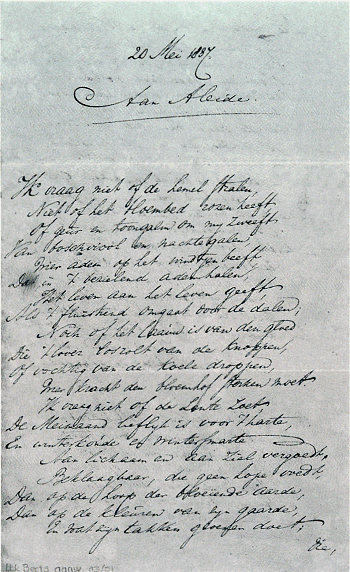 20 Mei 1837.
Aan Aleide.
Ik vraag niet of de hemel stralen,
Niet of het bloembed rozen heeft
Of geur en toongalm om my zweeft
Van boschviool en nachtegalen,
Wier adem op het windtjen beeft
Dat in 't bezielend ademhalen,
Het leven aan het leven geeft
Als 't fluistrend omgaat door de dalen;
Noch of het is van den gloed
Die 't loover losrolt van de knoppen,
Of vochtig van de koele droppen,
Wier kracht den bloemhof sterken moet
Ik vraag niet of de Lente zoet,
De Meimaand lieflyk is voor 't harte,
En winterkoude en wintersmarte
Aan lichaam en aan ziel vergoedt,
Beklaagbaar, die geen hope voedt,
Dan op de hoop der bloeiende aarde,
Dan op de kleuren van zyn gaarde,
En wat zyn takken groeien doet;
Die,